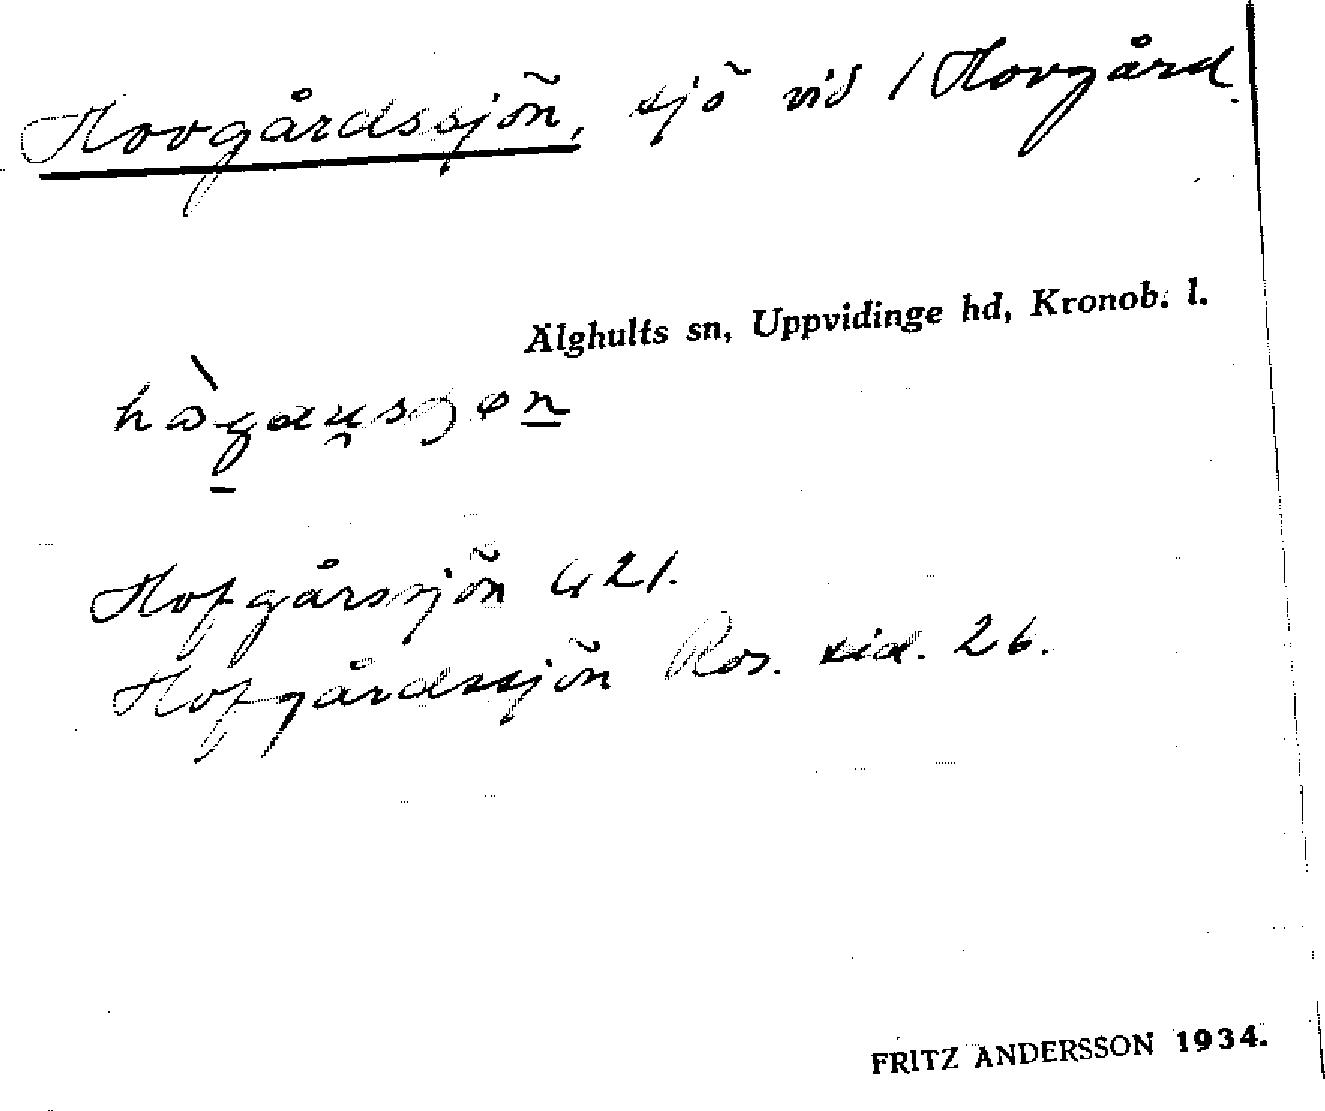 Hovgårdssjön, sjö vid / Hovgård.
Älghults sn, Uppvidinge hd, Kronob. l.
Hofgårssjön G 21.
Hofgårdssjön Ros. sid. 26.
FRITZ ANDERSSON 1934.